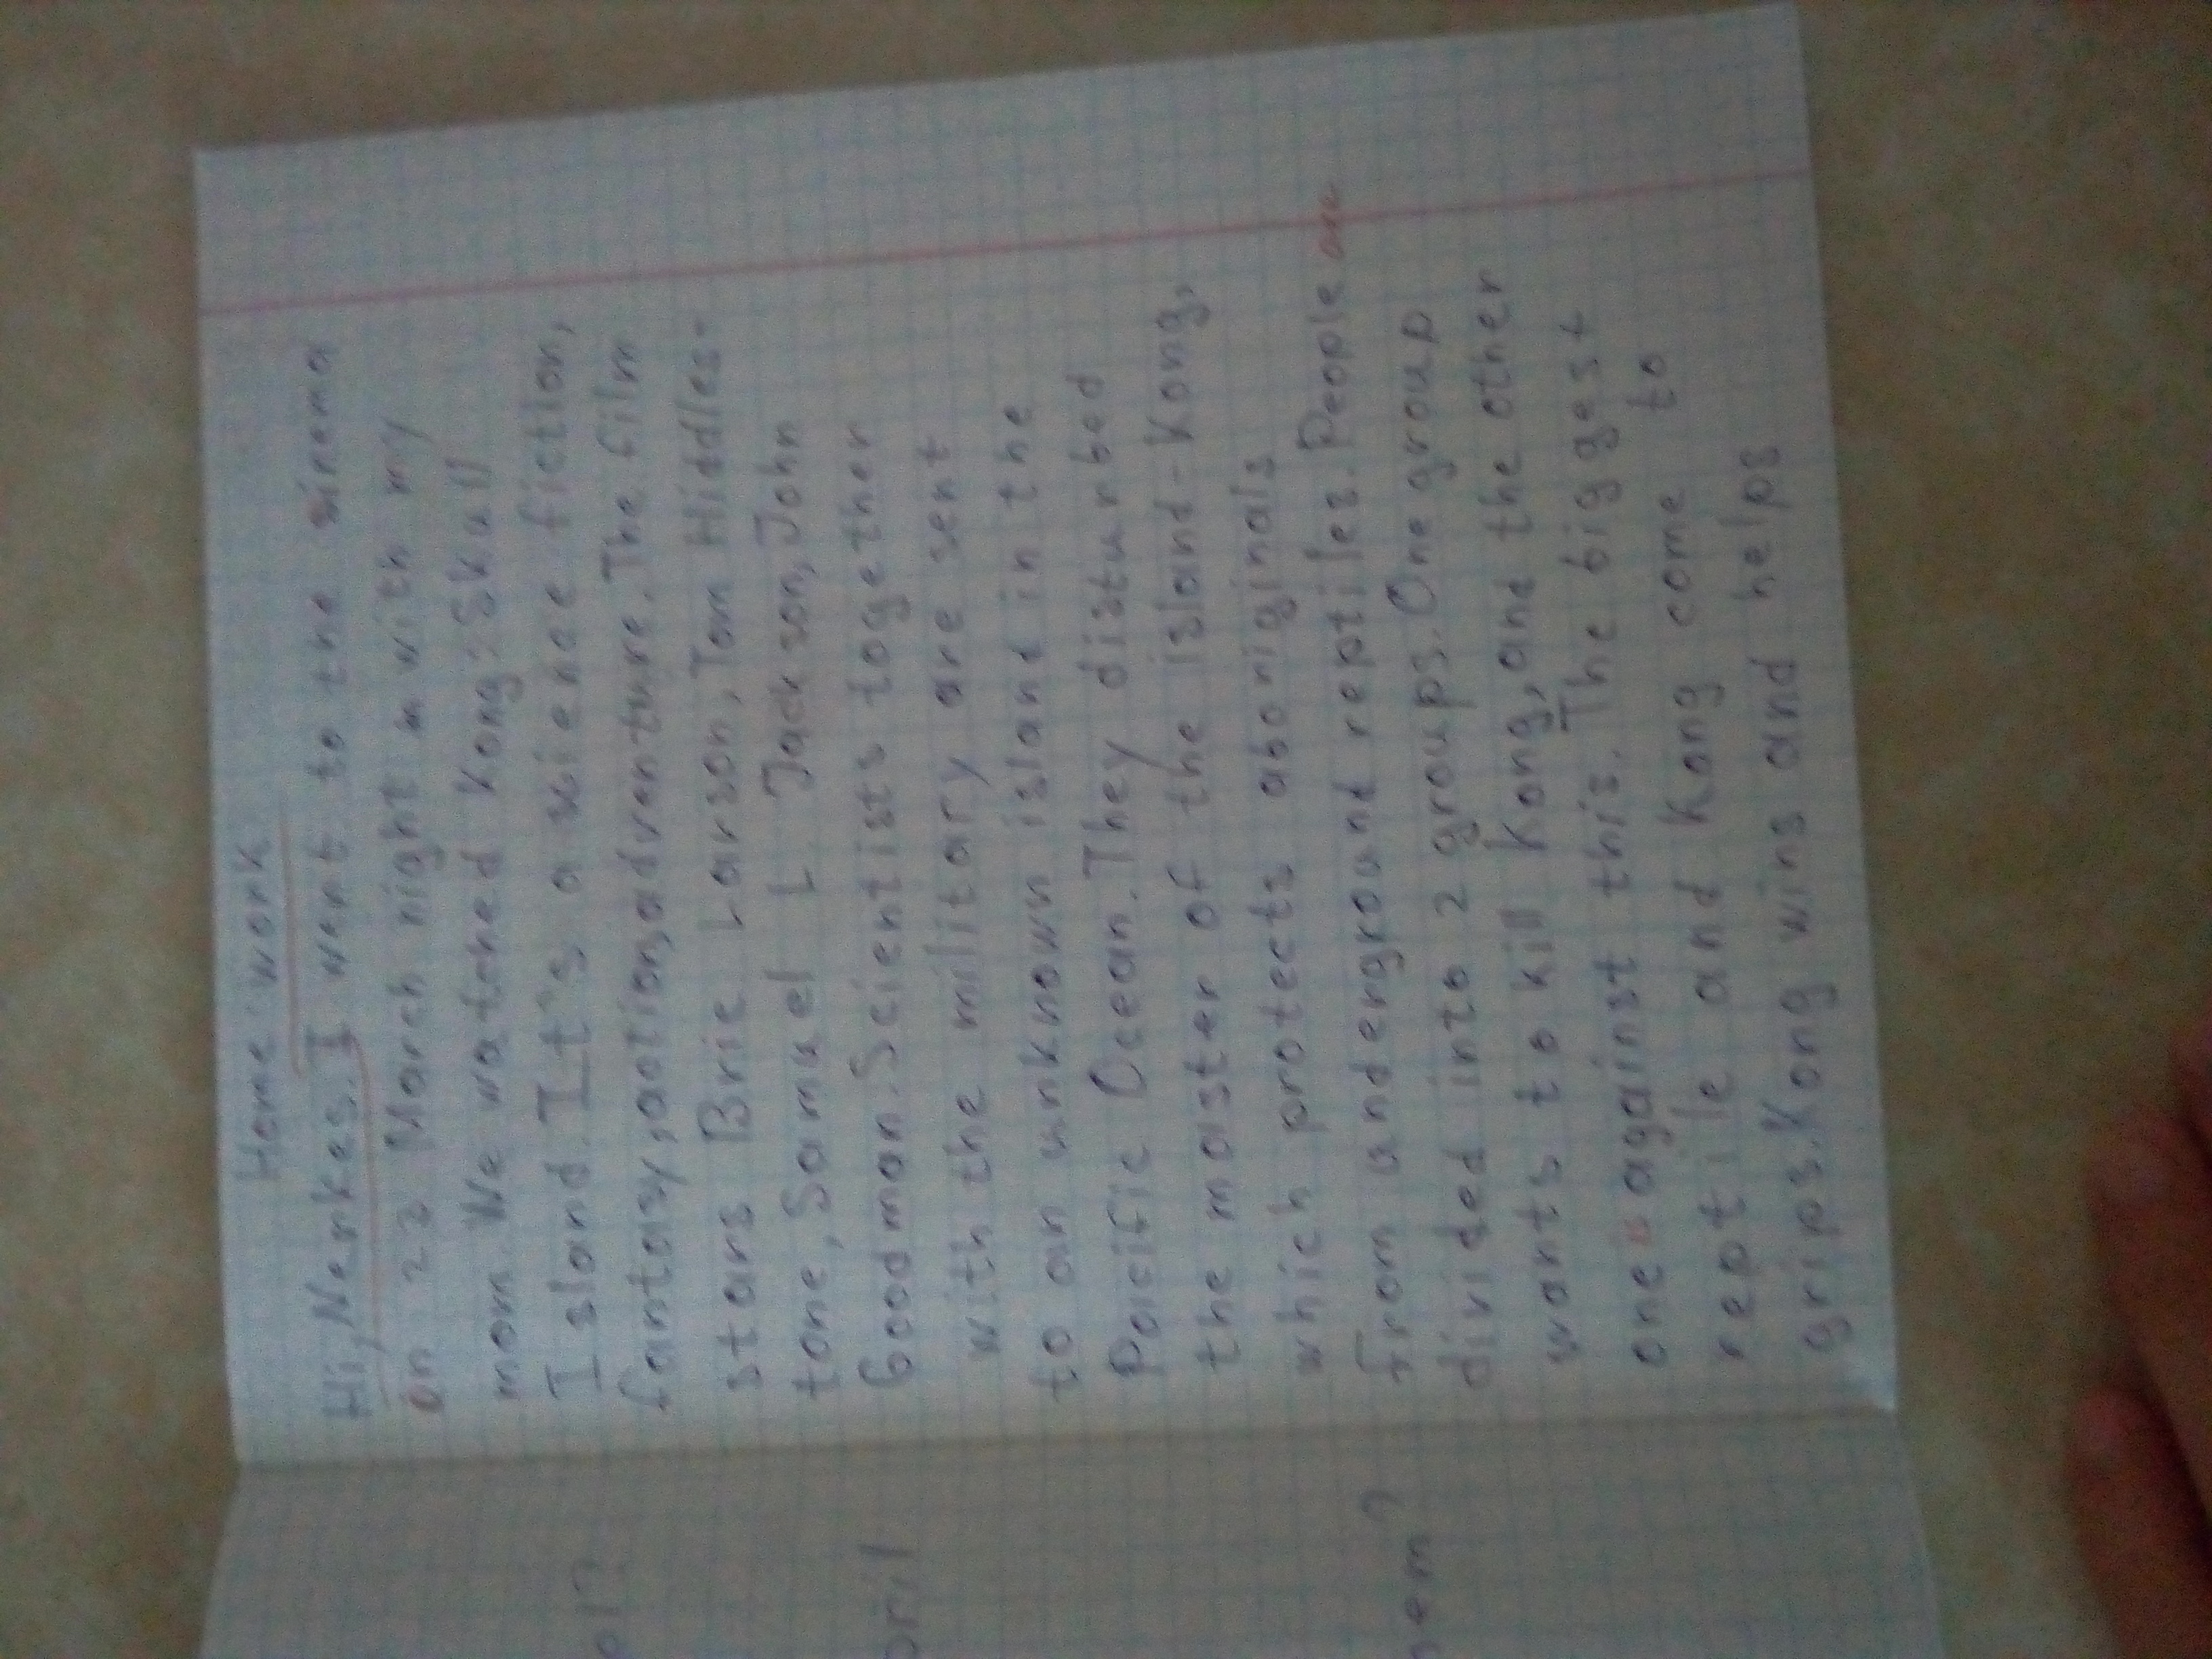 Home work
Hi, Nenkes. I went to the sinema
on 22 March night with my
mom. We watched Kong: Skull
Island. It's a science fiction,
fantasy, action, adventure. The film
stars Brie Larson, Tom Hiddles-
tone, Samuel L. Jackson, John
Goodman. Scientists together
with the military are sent
to an unknown island in the
Pacific Ocean. They disturbed
the master of the island-Kong,
which protects aboriginals
from underground reptiles. People are
divided into 2 groups. One group
wants to kill Kong, and the other
one is against this. The biggest
reptile and Kong come to
grips. Kong wins and helps